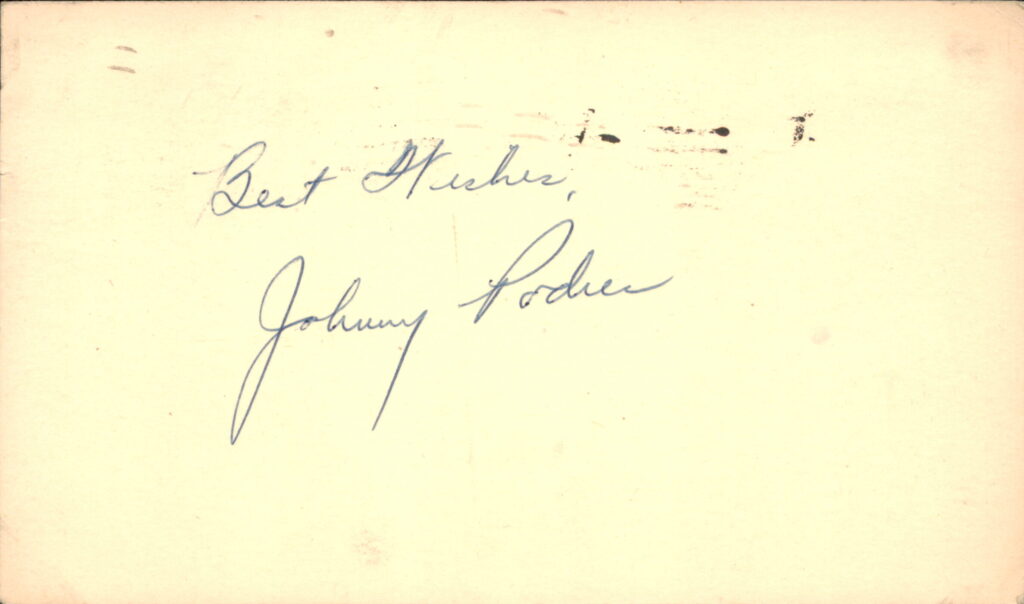 Best Wishes,
Johnny Podres